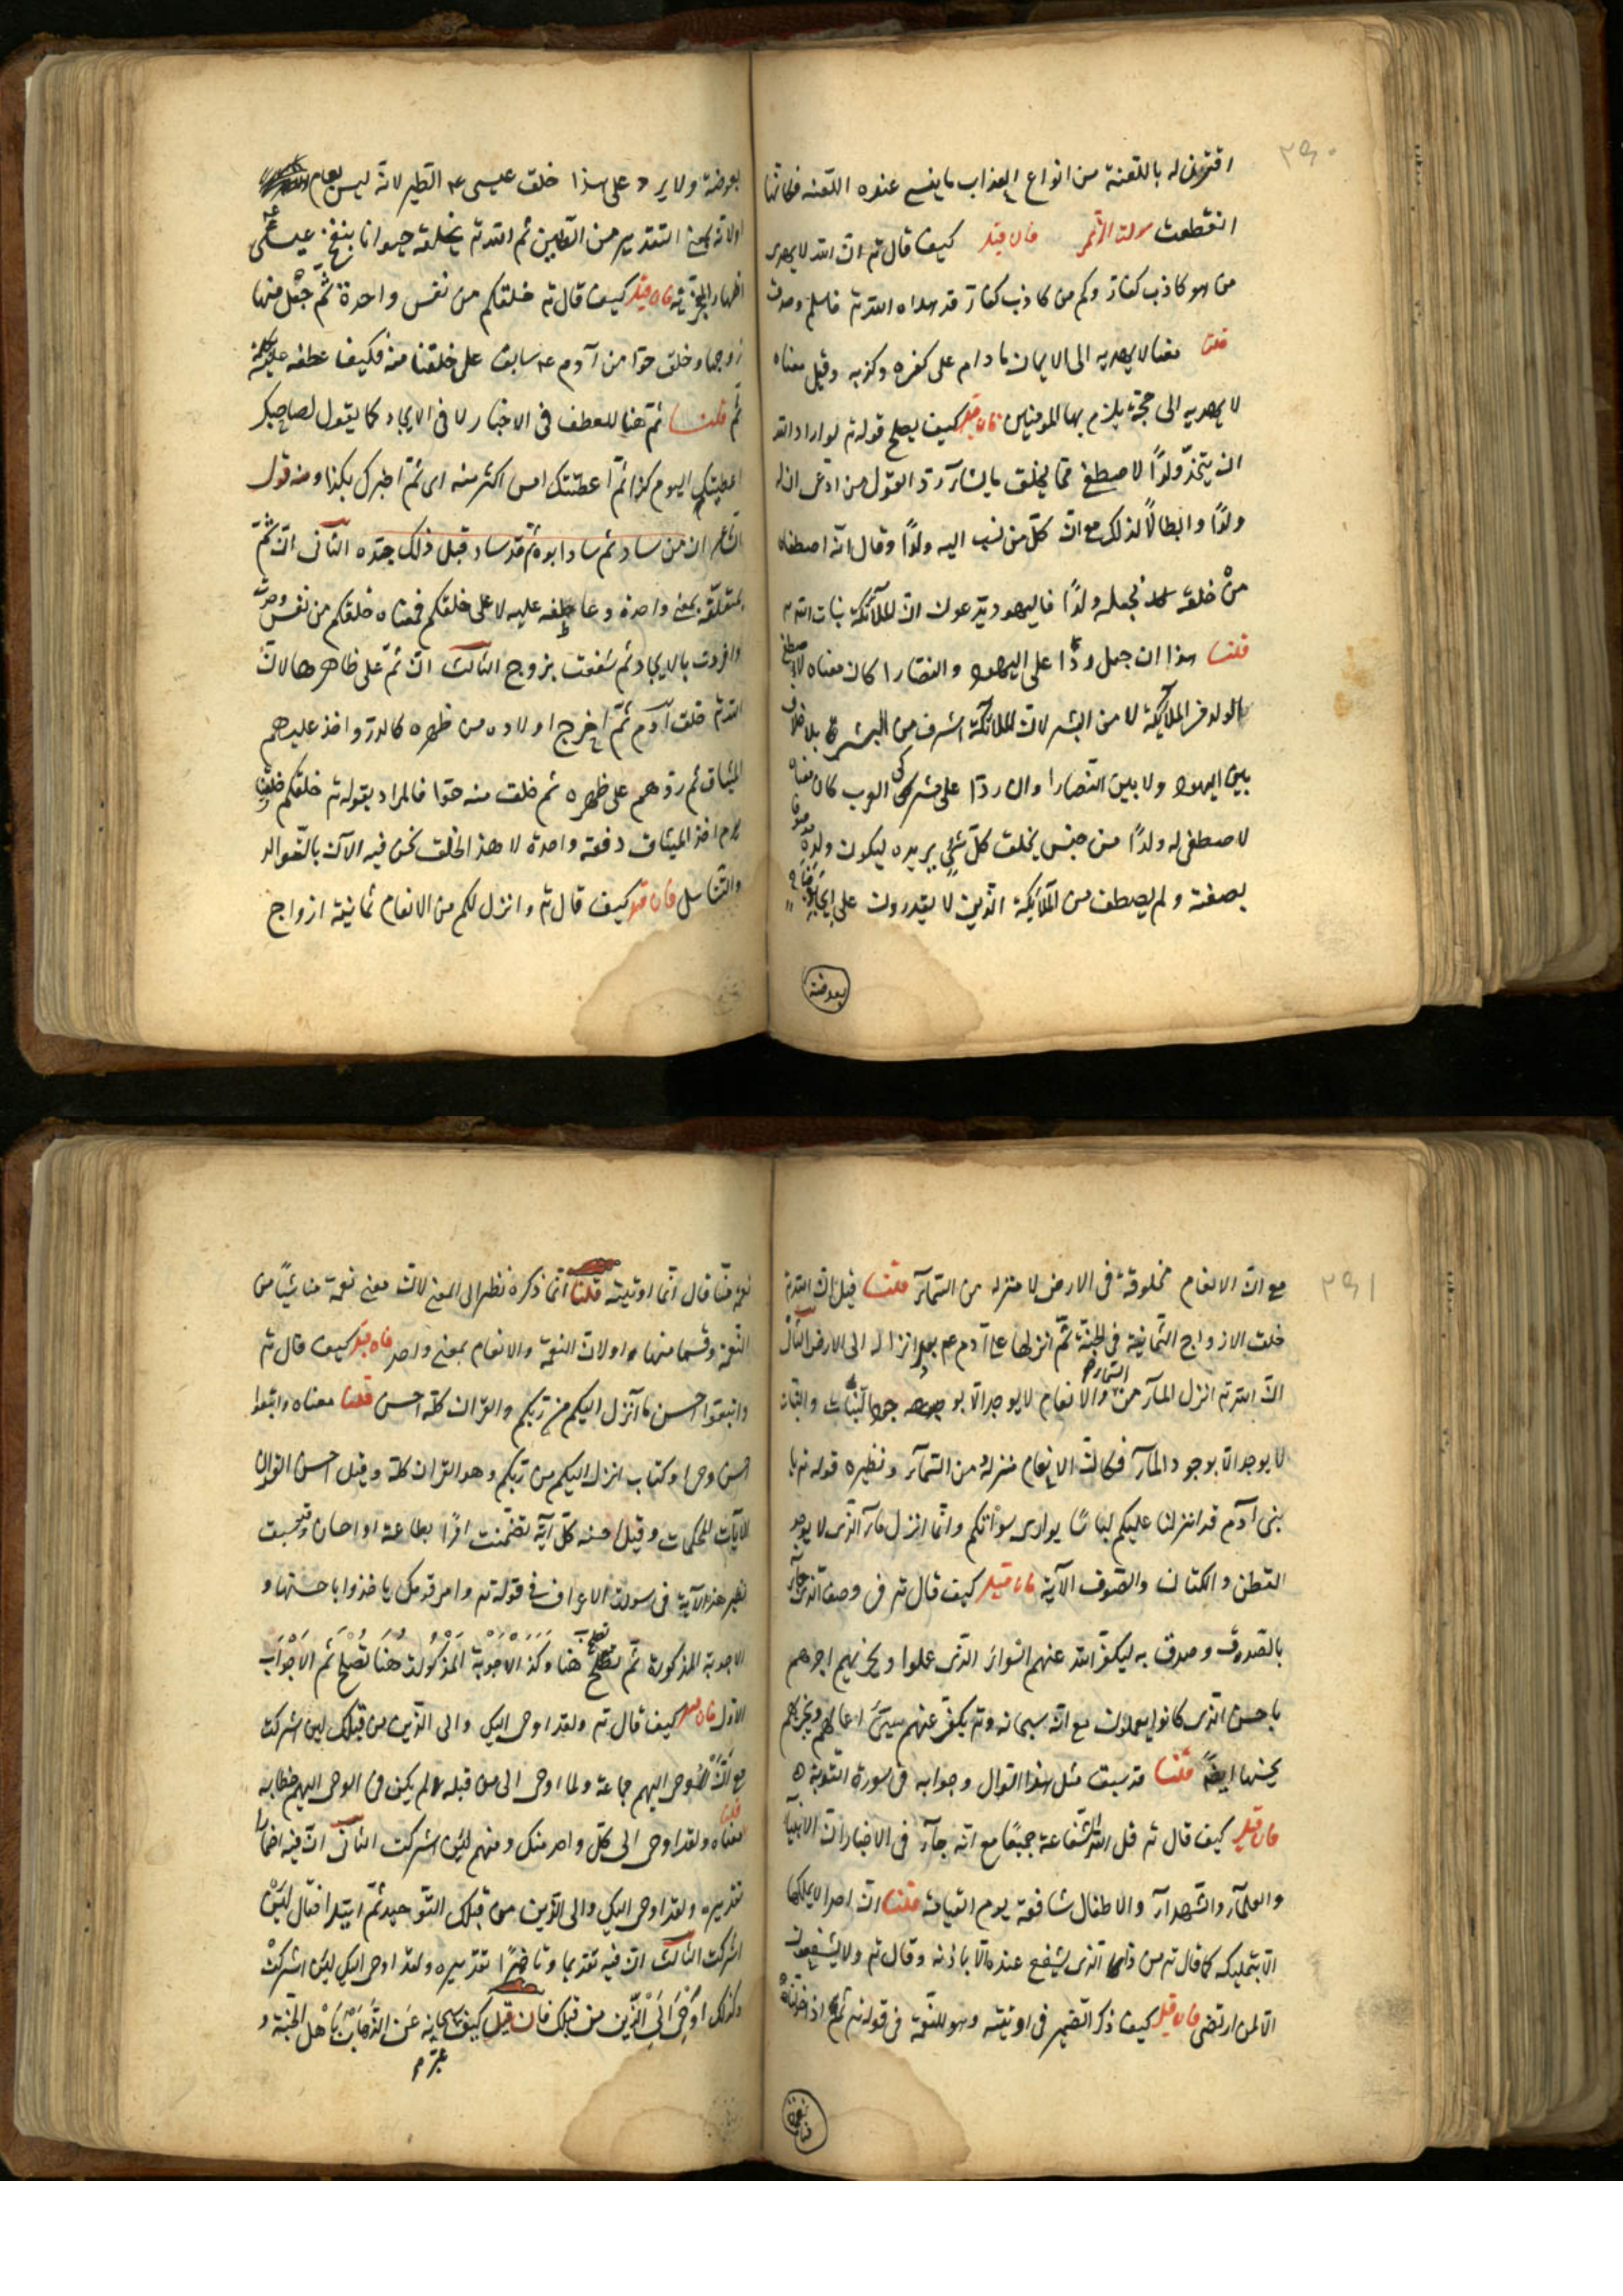 ٢٩٠
اقترن له باللعنة من انواع العذاب ما ينسى عنده اللعنة فكانها
انقطعت سورة الزمر فان قيل كيف قال تع ان الله لا يهدى
من هو كاذب كفار وكم من كاذب كفار قد هداه الله تع فاسلم وصدق
قلنا معناه لا يهديه الى الايمان ما دام على كفره وكذبه وقيل معناه
لا يهديه الى حجة يلزم بها المومنين فان قيل كيف يصلح قوله تع لو اراد الله
ان يتخذ ولدًا لاصطفى مما يخلق ما يشاء رد القول من ادعى ان له
ولدًا وابطالًا لذلك مع ان كل من نسب اليه ولدًا وقال انه اصطفاه
من خلقه فجعله ولدًا فاليهود يدعون ان الملآئكة بنات الله
قلنا هذا ان جعل ردًّا على اليهود والنصارا كان معناه لاصطفى
الولد من الملآيكة لا من البشر لان الملائكة اشرف من البشر بلا خلاف
بين اليهود ولا بين النصارا وان ردا على مشركى العرب كان معناه
لاصطفى له ولدًا من جنس يخلق كل شئ يريده ليكون ولده موصوفا
بصفته ولم يصطف من الملآيكة الذين لا يقدرون على ايجاد جناح
بعوضة
بعوضة ولا يرد على هذا خلق عيسى ع الطير لانه ليس بعام
اولانه بمعنى التقدير من الطين ثم الله تع يخلقه حيوانا بنفخ عيسى
اظهارا لمعجزته فان قيل كيف قال تع خلقكم من نفس واحدة ثم جعل منها
زوجها وخلق حوا من آدم ع سابق على خلقنا منه فكيف عطفه عليه بكلمة
ثم قلنا ثم هنا للعطف فى الاخبار لا فى الايجاد كما يقول لصاحبك
اعطيتك اليوم كذا ثم اعطتتك امس اكثر منه اى ثم اخبرك بكذا ومنه قول
الشاعر ان من ساد ثم ساد ابوه ثم قد ساد قبل ذلك جده الثانى ان ثم
متعلقة بمعنى واحدة وعاطفة عليه لا على خلقكم فمعناه خلقكم من نفس وحدت
وافردت بالايجاد ثم شفعت بزوج الثالث ان ثم على ظاهرها لان
الله تع خلق آدم ثم اخرج اولاده من ظهره كالذر واخذ عليهم
الميثاق ثم ردهم على ظهره ثم خلق منه حوا فالمراد بقوله تع خلقكم خلقا
يوم اخذ الميثاق دفعة واحدة لا هذا الخلق نحن فيه الآن بالتوالد
والتناسل فان قيل كيف قال تع وانزل لكم من الانعام ثمانية ازواج
٢٩١
مع ان الانعام مخلوقة فى الارض لا منزله من السمآء قلنا قيل ان الله تع
خلق الازواج الثمانية فى الجنة ثم انزلها على آدم ع بعد انزاله الى الارض الثانى
ان الله تع انزل المآء من السماء والانعام لا يوجد الا بوجود النبات والنبات
لا يوجد الا بوجود المآء فكان الانعام منزلة من السمآء ونظيره قوله تع يا
بنى آدم قد انزلنا عليكم لباسًا يوارى سوأتكم وانما انزل مآء الذى لا يوجد
القطن والكتان والصوف الآية فان قيل كيف قال تع فى وصف الذى جآء
بالصدق وصدق به ليكفر الله عنهم اسوأ الذى عملوا ويجزيهم اجرهم
باحسن الذى كانوا يعملون مع انه سبحانه وتع يكفر عنهم سيئ اعمالهم ويجزيهم
بحسنها ايضا قلنا قد سبق مثل هذا السوال وجوابه فى سورة التوبة
فان قيل كيف قال تع قل لله الشفاعة جميعًا مع انه جآء فى الاخبار ان الانبيآء
والعلمآء والشهدآء والاطفال شافعة يوم القيامة قلنا ان احدا لا يملكها
الا بتمليكه كما قال تع من ذا الذى يشفع عنده الا باذنه وقال تع ولا يشفعون
الا لمن ارتضى فان قيل كيف ذكر الضمير فى اوتيته وهو للنعمة فى قوله تع ثم اذا خولناه
نعمة منا
نعمة منا قال انما اوتيته قلنا انما ذكره نظرا الى المعنى لان معنى نعمة منا شيئًا من
النعمة وقسما منها او لان النعمة والانعام بمعنى واحد فان قيل كيف قال تع
واتبعوا احسن ما انزل اليكم من ربكم والقرآن كله احسن قلنا معناه واتبعوا
احسن وحى او كتاب انزل اليكم من ربكم وهو القرآن كله وقيل احسن القرآن
الآيات المحكمات وقيل احسنه كل آية تضمنت امرًا بطاعة او احسان وقد سبقت
نظير هذه الآية فى سورة الاعراف فى قوله تع وامر قومك ياخذوا باحسنها و
الاجوبة المذكورة ثم تصلح هنا وكذا الاجوبة المذكورة هنا تصلح ثم الاجواب
الاول فان قيل كيف قال تع ولقد اوحى اليك والى الذين من قبلك لئن اشركت
مع ان الموحى اليهم جماعة ولما اوحى الى من قبله لم يكن فى الوحى اليهم خطابه
قلنا معناه ولقد اوحى الى كل واحد منك ومنهم لئن اشركت الثانى ان فيه اضمارا
تقديره ولقد اوحى اليك والى الذين من قبلك التوحيد ثم ابتدا فقال لئن
اشركت الثالث ان فيه تقديما وتاخيرًا تقديره ولقد اوحى اليك لئن اشركت
وكذلك اوحى الى الذين من قبلك فان قيل كيف عبر سبحانه عن الذهاب باهل الجنة و